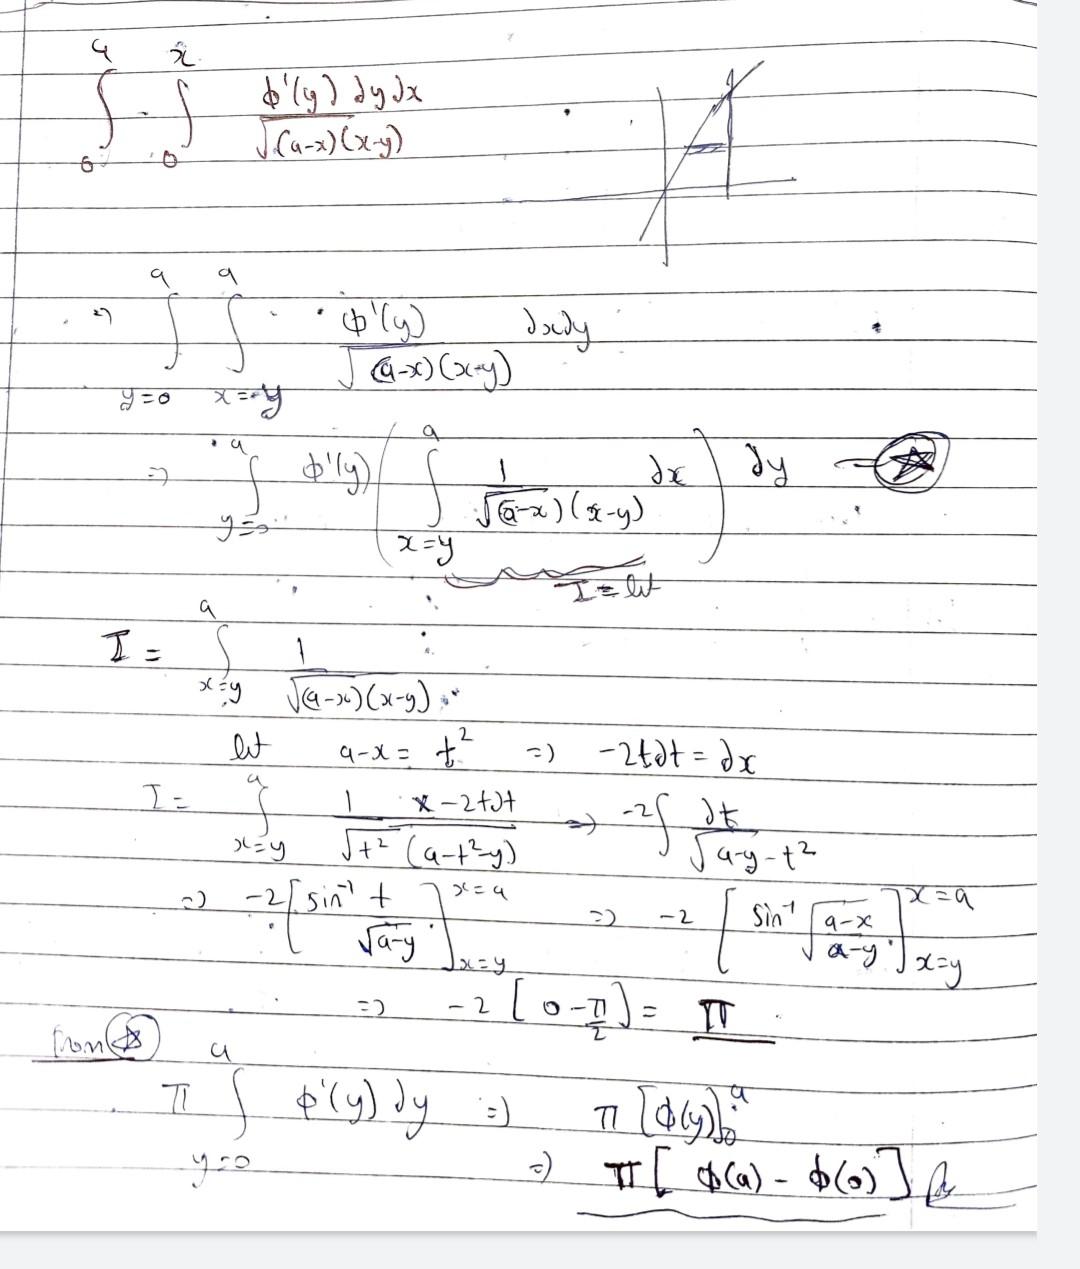 ∫₀^a ∫₀^x ϕ'(y) dy dx / √(a-x)(x-y)
=> ∫_{y=0}^a ∫_{x=y}^a ϕ'(y) / √(a-x)(x-y) dx dy
=> ∫_{y=0}^a ϕ'(y) ( ∫_{x=y}^a 1 / √(a-x)(x-y) dx ) dy — ☆
I = let
I = ∫_{x=y}^a 1 / √(a-x)(x-y)
let a-x = t² => -2tdt = dx
I = ∫_{x=y}^a 1 × -2tdt / √t² (a-t²-y) => -2∫ dt / √a-y-t²
=> -2 [ sin⁻¹ t / √a-y ]_{x=y}^{x=a} => -2 [ sin⁻¹ √(a-x / a-y) ]_{x=y}^{x=a}
=> -2 [ 0 - π/2 ] = π
from ☆
π ∫_{y=0}^a ϕ'(y) dy => π [ϕ(y)]₀^a
=> π [ ϕ(a) - ϕ(0) ]